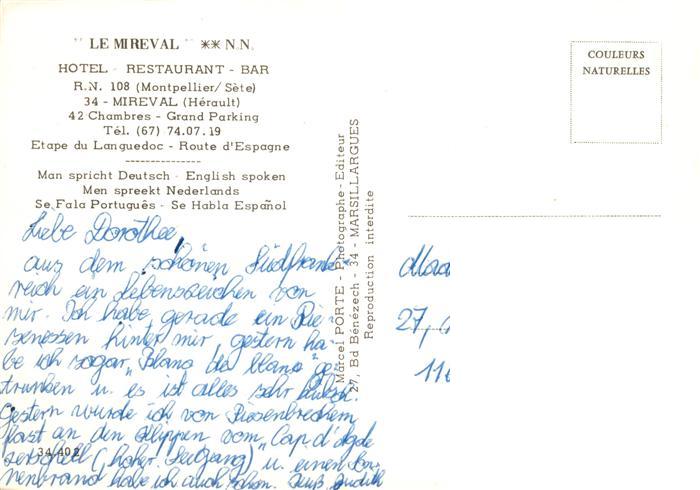 " LE MIREVAL " ** N.N.
HOTEL - RESTAURANT - BAR
R.N. 108 (Montpellier/ Sète)
34 - MIREVAL (Hérault)
42 Chambres - Grand Parking
Tél. (67) 74.07.19
Etape du Languedoc - Route d'Espagne
Man spricht Deutsch - English spoken
Men spreekt Nederlands
Se Fala Português - Se Habla Español
Liebe Dorothee,
aus dem schönen Südfrank
reich ein Lebenszeichen von
mir. Ich habe gerade ein Rie-
senessen hinter mir, gestern ha-
be ich sogar „Blanc de blanc" ge-
trunken u. es ist alles sehr hübsch.
Gestern wurde ich von Riesenbrechern
fast an den Klippen vom „Cap d'Agde
zerschellt (hoher Seegang) u. einen Son-
nenbrand habe ich auch schon. Gruß, Judith
34.402
Marcel PORTE - Photographe - Editeur
27, Bd Bénézech - 34 - MARSILLARGUES
Reproduction interdite
COULEURS
NATURELLES
27,